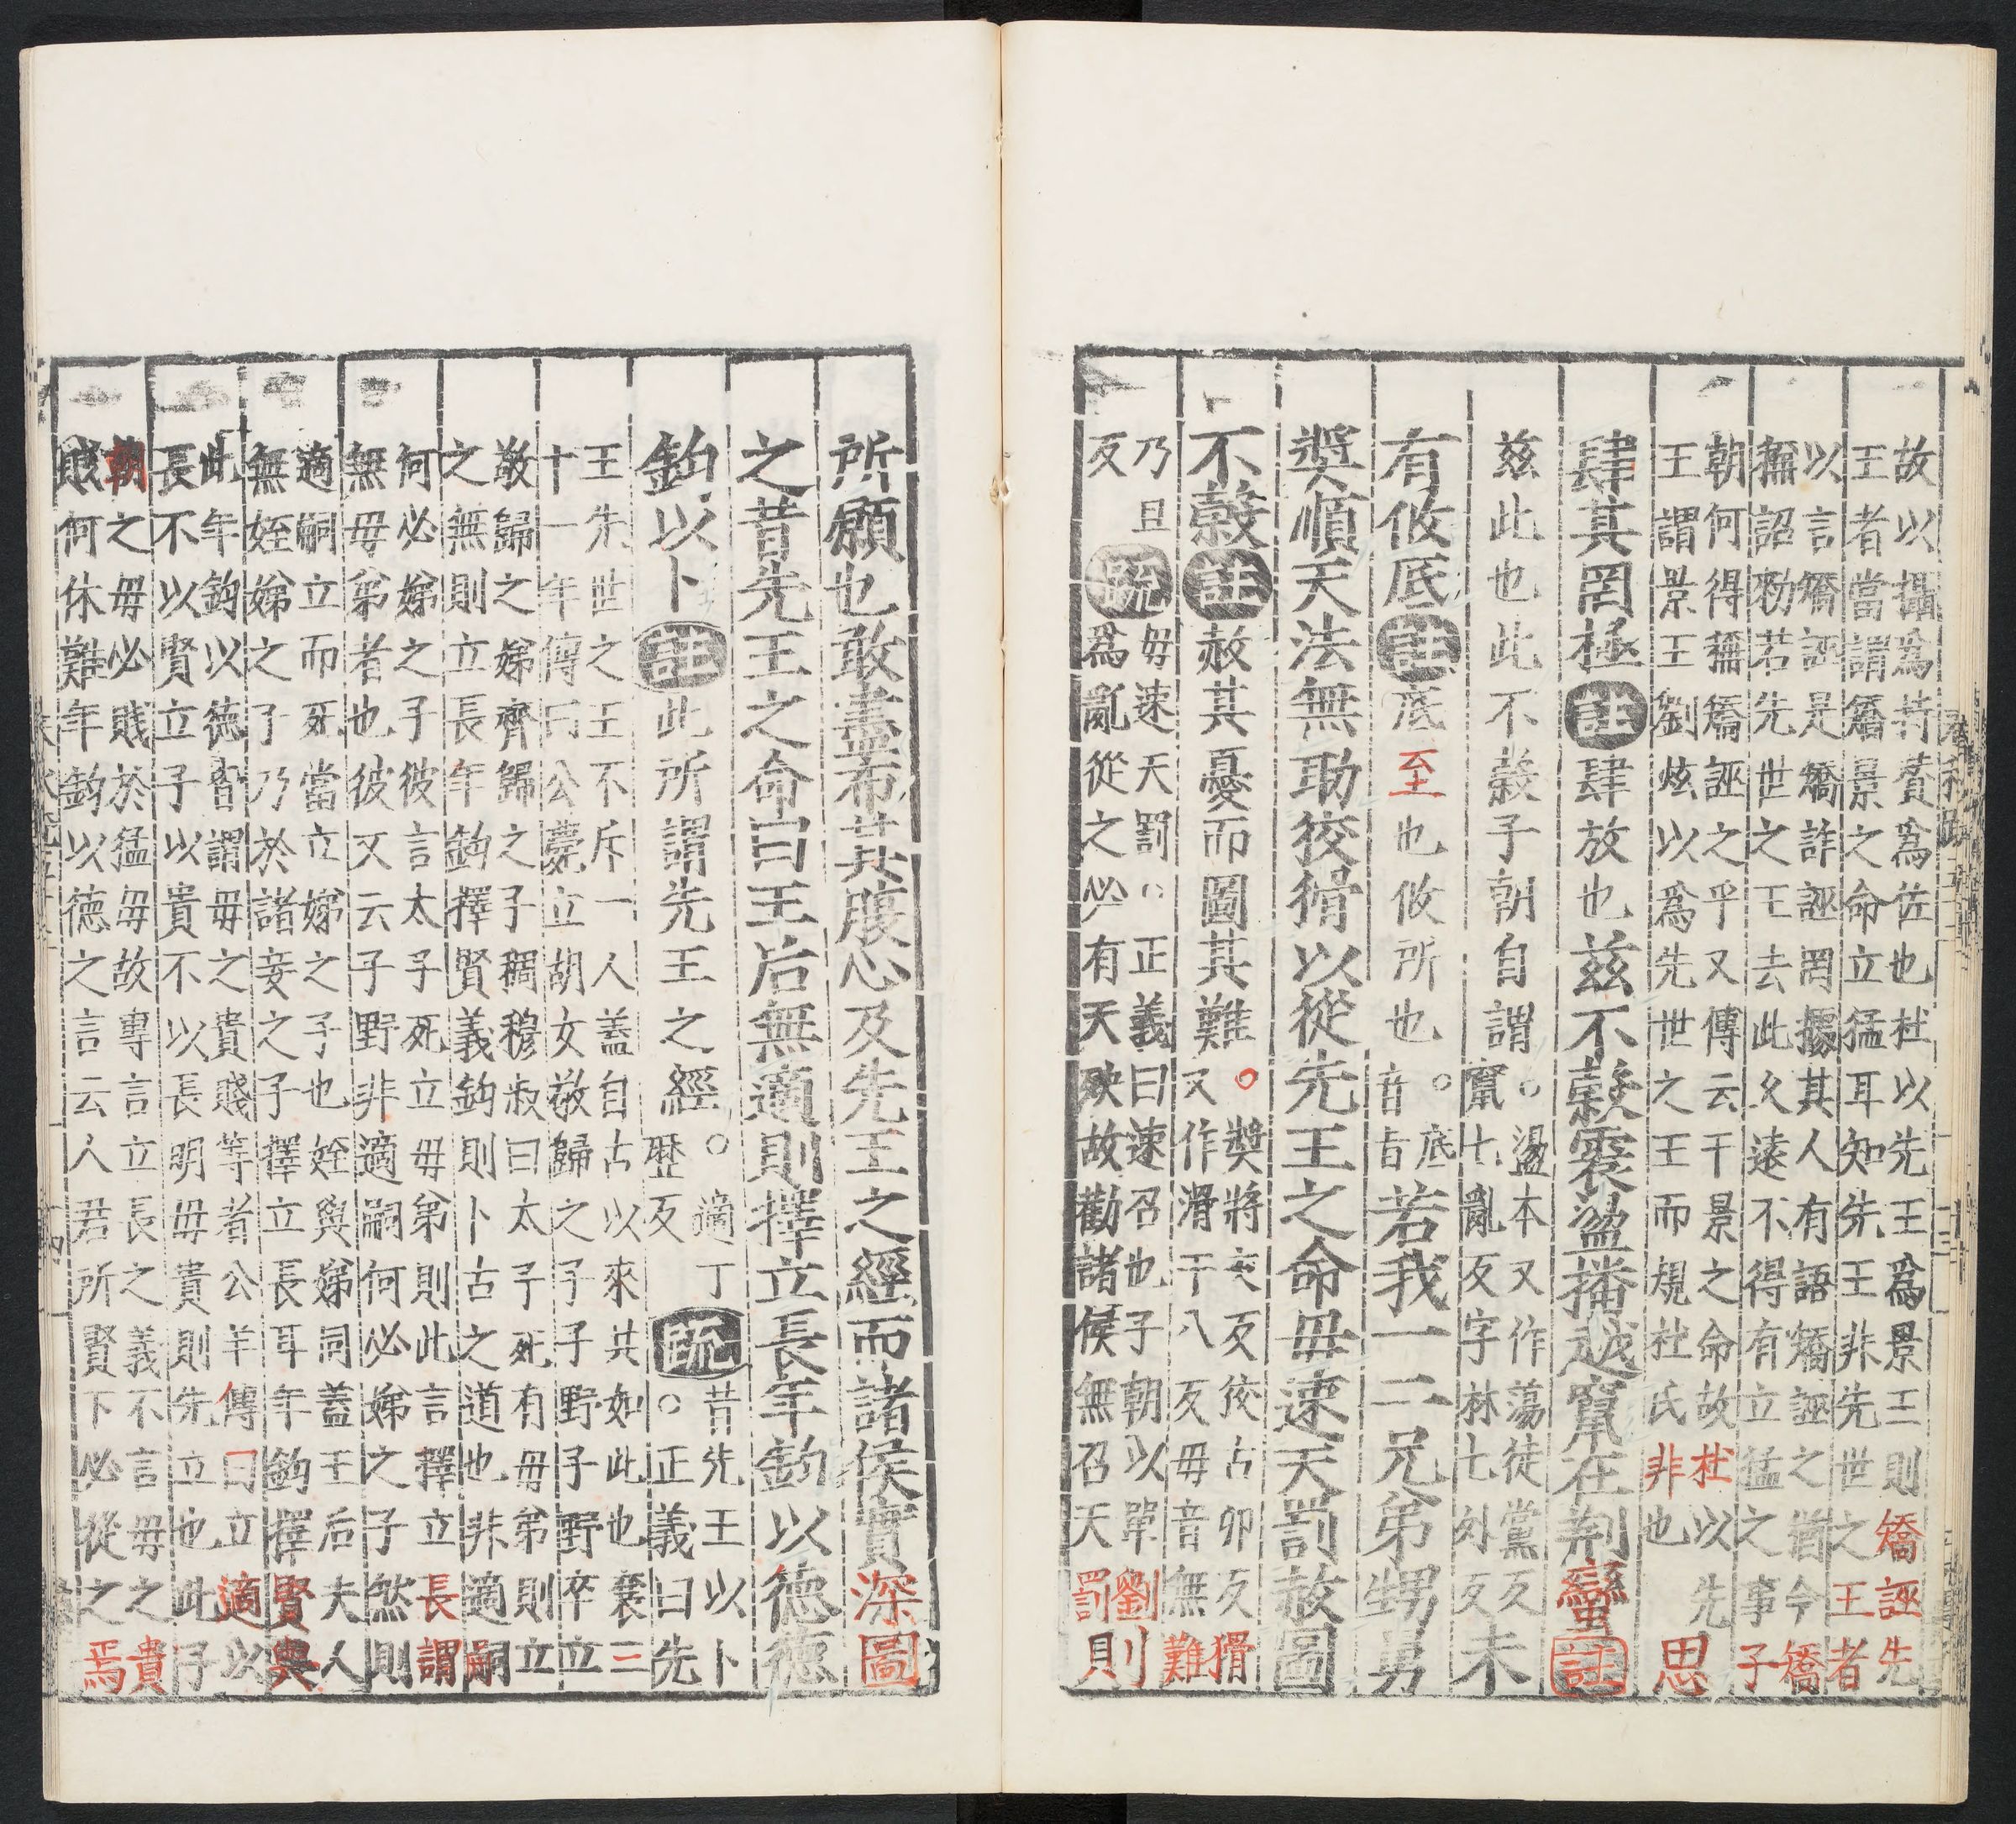 故以攝爲持賛爲佐也杜以先王爲景王則矯誣先
王者當謂矯景之命立猛耳知先王非先世之王者
以言矯誣是矯詐誣罔據其人有語矯誣之者今矯
稱詔勑若先世之王去此久遠不得有立猛之事子
朝何得稱矯誣之乎又傳云干景之命故杜以先
王謂景王劉炫以爲先世之王而規杜氏非也
思
肆其罔極註肆放也茲不穀震盪播越竄在荆蠻註
茲此也此不穀子朝自謂○盪本又作蕩徒黨反
竄七亂反字林七外反
未
有攸底註底至也攸所也○底
音旨
若我一二兄弟甥舅
奬順天法無助狡猾以從先王之命毋速天罰赦圖
不穀註赦其憂而圖其難○奬將丈反狡古卯反猾
又作滑干八反毋音無難
乃旦
反
疏
毋速天罰○正義曰速召也子朝以單劉則
爲亂從之必有天殃故勸諸侯無召天罰具
所願也敢盡布其腹心及先王之經而諸侯實深圖
之昔先王之命曰王后無適則擇立長年鈞以德德
鈞以卜註此所謂先王之經○適丁
歷反
疏
昔先王以卜
○正義曰先
王先世之王不斥一人蓋自古以來共如此也襄三
十一年傳曰公薨立胡女敬歸之子子野子野卒立
敬歸之娣齊歸之子稠穆叔曰太子死有毋弟則立
之無則立長年鈞擇賢義鈞則卜古之道也非適嗣
何必娣之子彼言太子死立毋弟則此言擇立長謂
無毋弟者也彼又云子野非適嗣何必娣之子然則
適嗣立而死當立娣之子也姪與娣同蓋王后夫人
無姪娣之子乃於諸妾之子擇立長耳年鈞擇賢典
此年鈞以德皆謂毋之貴賤等者公羊傳曰立適以
長不以賢立子以貴不以長明毋貴則先立也此子
朝之毋必賤於猛毋故專言立長之義不言毋之貴
賤何休難年鈞以德之言云人君所賢下必從之焉